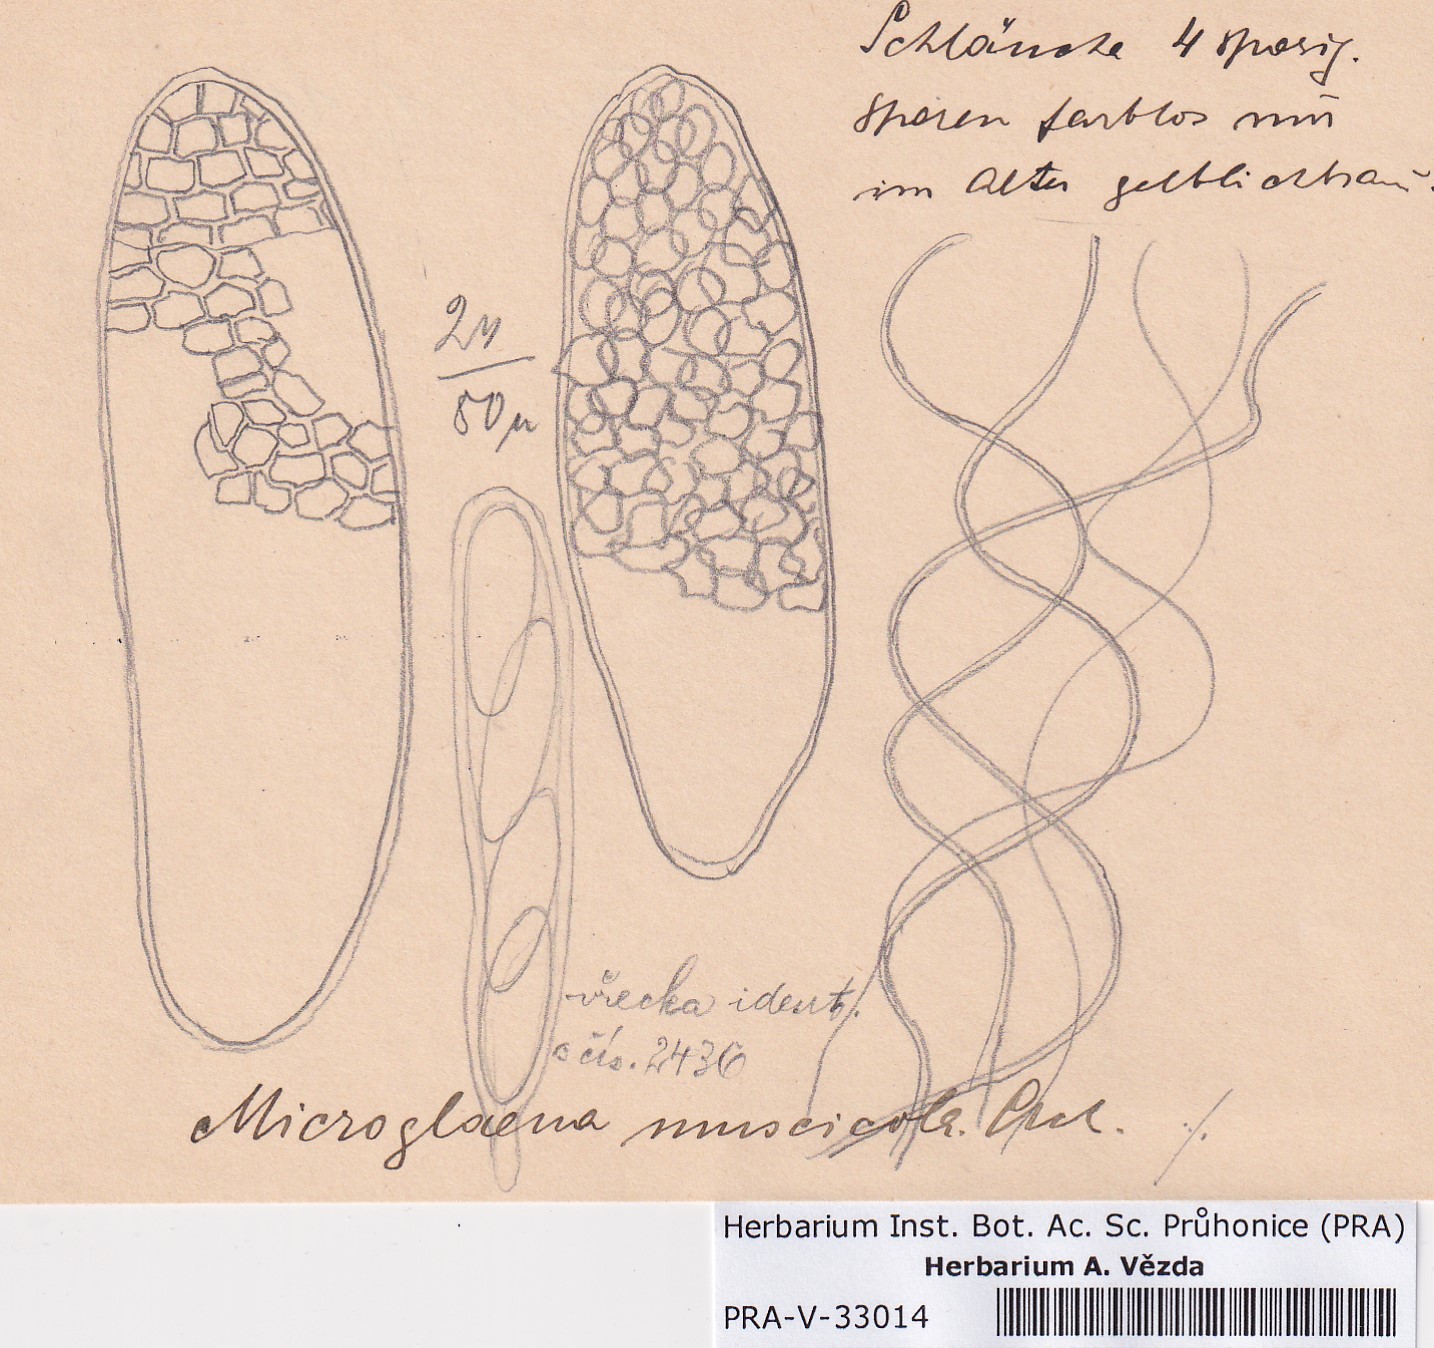 Schläuche 4 sporig.
Sporen farblos nur
im Alter gelblichbraun.
50µ
vřecka ident.
s čís. 2436
Microglaena muscicola.
Herbarium Inst. Bot. Ac. Sc. Průhonice (PRA)
Herbarium A. Vězda
PRA-V-33014